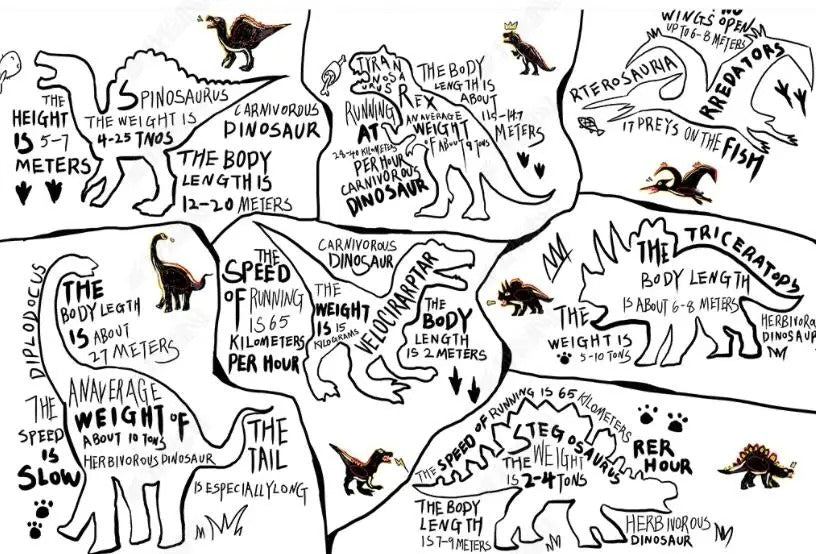 SPINOSAURUS
THE HEIGHT
IS 5-7
METERS
THE WEIGHT IS
4-25 TNOS
CARNIVOROUS
DINOSAUR
THE BODY
LENGTH IS
12-20 METERS
TYRAN
NOSA
URUS
REX
RUNNING
AT
PER HOUR
CARNIVOROUS
DINOSAUR
AN AVERAGE
WEIGHT
OF ABOUT 9 TONS
THE BODY
LENGTH IS
ABOUT
METERS
WINGS OPEN
UP TO 6-8 METERS
RTEROSAURIA
RREDATORS
IT PREYS ON THE FISH
DIPLODOCUS
THE
BODY LEGTH
IS ABOUT
27 METERS
THE
SPEED
IS
SLOW
AN AVERAGE
WEIGHT OF
ABOUT 10 TONS
HERBIVOROUS DINOSAUR
THE
TAIL
IS ESPECIALLY LONG
THE
SPEED
OF RUNNING
IS 65
KILOMETERS
PER HOUR
CARNIVOROUS
DINOSAUR
THE
WEIGHT
IS 15
KILOGRAMS
VELOCIRARPTAR
THE
BODY
LENGTH
IS 2 METERS
THE TRICERATOPS
BODY LENGTH
IS ABOUT 6-8 METERS
THE
WEIGHT IS
5-10 TONS
HERBIVOROUS
DINOSAUR
THE SPEED OF RUNNING IS 65 KILOMETERS
RER
HOUR
STEGOSAURUS
THE WEIGHT
IS 2-4 TONS
THE BODY
LENGTH
IS 7-9 METERS
HERBIVOROUS
DINOSAUR